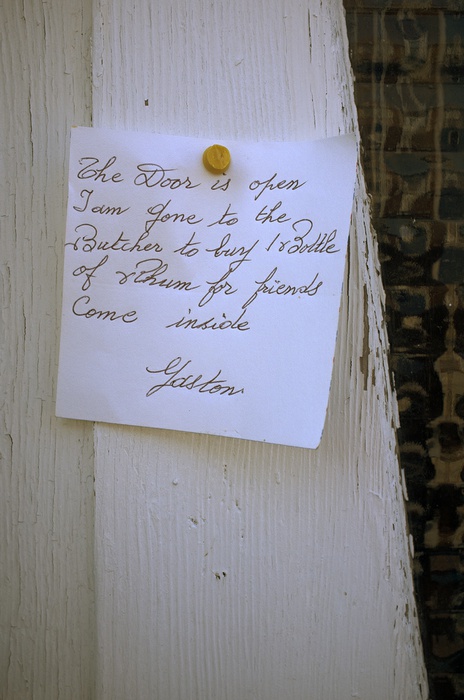 The Door is open
I am gone to the
Butcher to buy 1 Bottle
of Rhum for friends
Come inside
Gaston